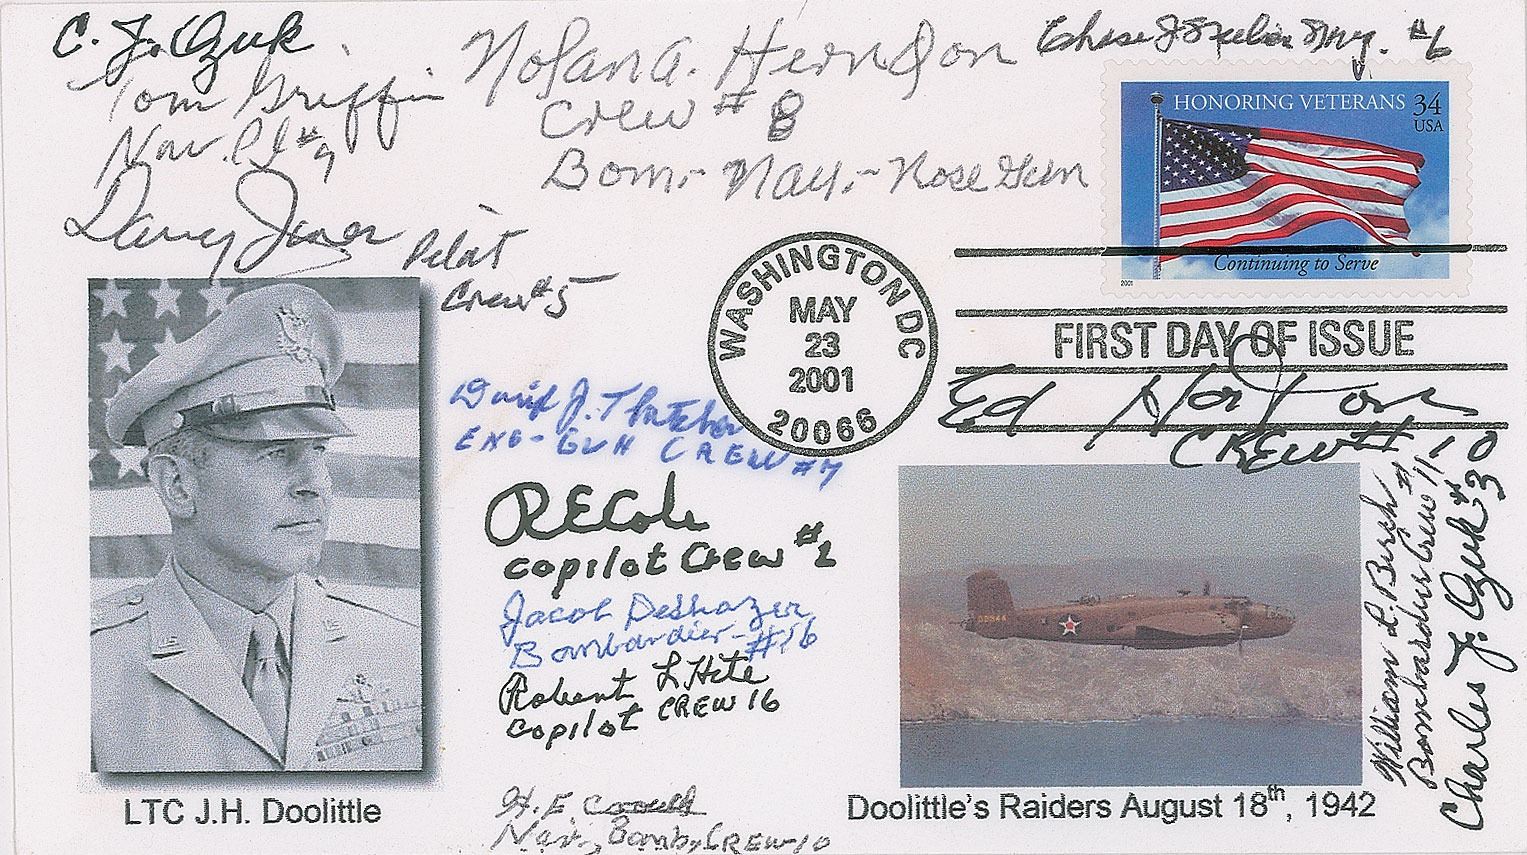 C. J. Ozuk
Tom Griffin
Nav. Pl #9
Nolan A. Herndon
Crew # 8
Bom.- Nav.- Nose Gun
Chase J Nielsen Nav. #6
HONORING VETERANS 34
USA
Continuing to Serve
2001
Davey Jones Pilot
Crew #5
WASHINGTON DC
MAY
23
2001
20066
FIRST DAY OF ISSUE
Ed Horton
CREW # 10
David J. Thatcher
ENG-GUN CREW #7
R E Cole
copilot Crew #
Jacob DeShazer
Bombardier-#16
Robert L Hite
copilot CREW 16
H. E.
Nav, Bomb, CREW-10
William L. Birch
Bombardier Crew 11
Charles J. Ozuk #3
LTC J.H. Doolittle
Doolittle's Raiders August 18th, 1942